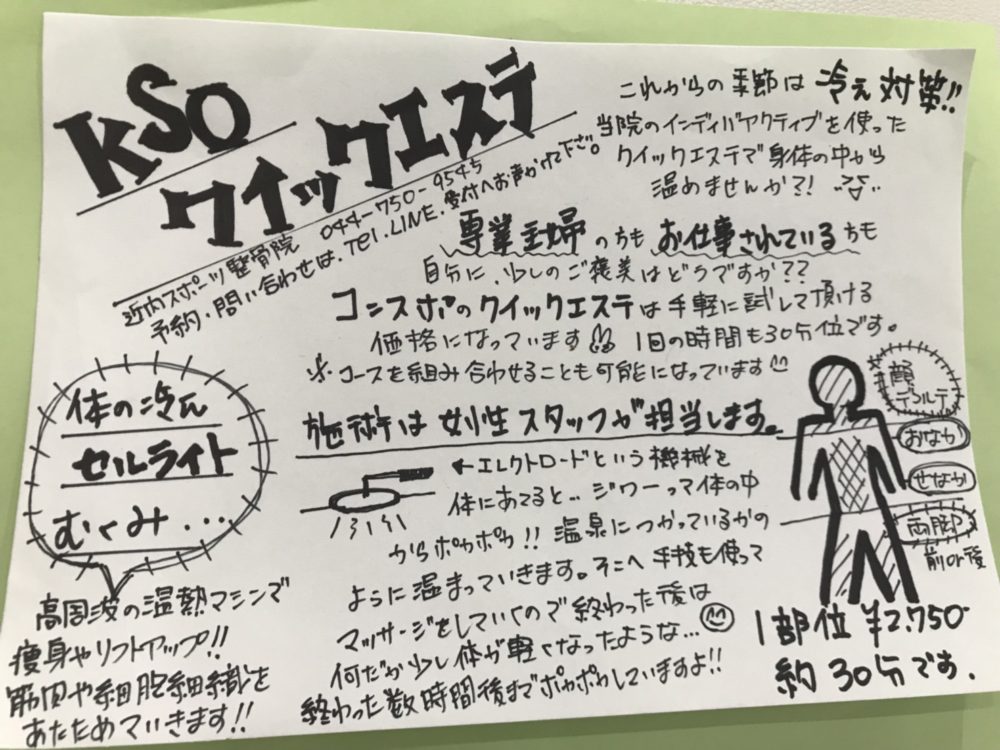 KSO
クイックエステ
近内スポーツ整骨院 044-750-9545
予約・問い合わせは、Tel、LINE、受付へお声かけて下さい。
これからの季節は冷え対策!!
当院のインディバアクティブを使った
クイックエステで身体の中から
温めませんか?!
専業主婦の方も お仕事されている方も
自分に、少しのご褒美はどうですか??
コンスポのクイックエステは手軽に試して頂ける
価格になっています 1回の時間も30分位です。
※コースを組み合わせることも可能になっています
施術は女性スタッフが担当します。
体の冷え
セルライト
むくみ...
高周波の温熱マシンで
痩身やリフトアップ!!
筋肉や細胞細織を
あたためていきます!!
←エレクトロードという機械を
体にあてると...ジワーって体の中
からポカポカ!! 温泉につかっているかの
ように温まっていきます。そこへ手技も使って
マッサージをしていくので終わった後は
何だか少し体が軽くなったような...
終わった数時間後までポカポカしていますよ!!
顔
デコルテ
おなか
せなか
両脚
前or後
1部位 ¥2.750-
約30分です.